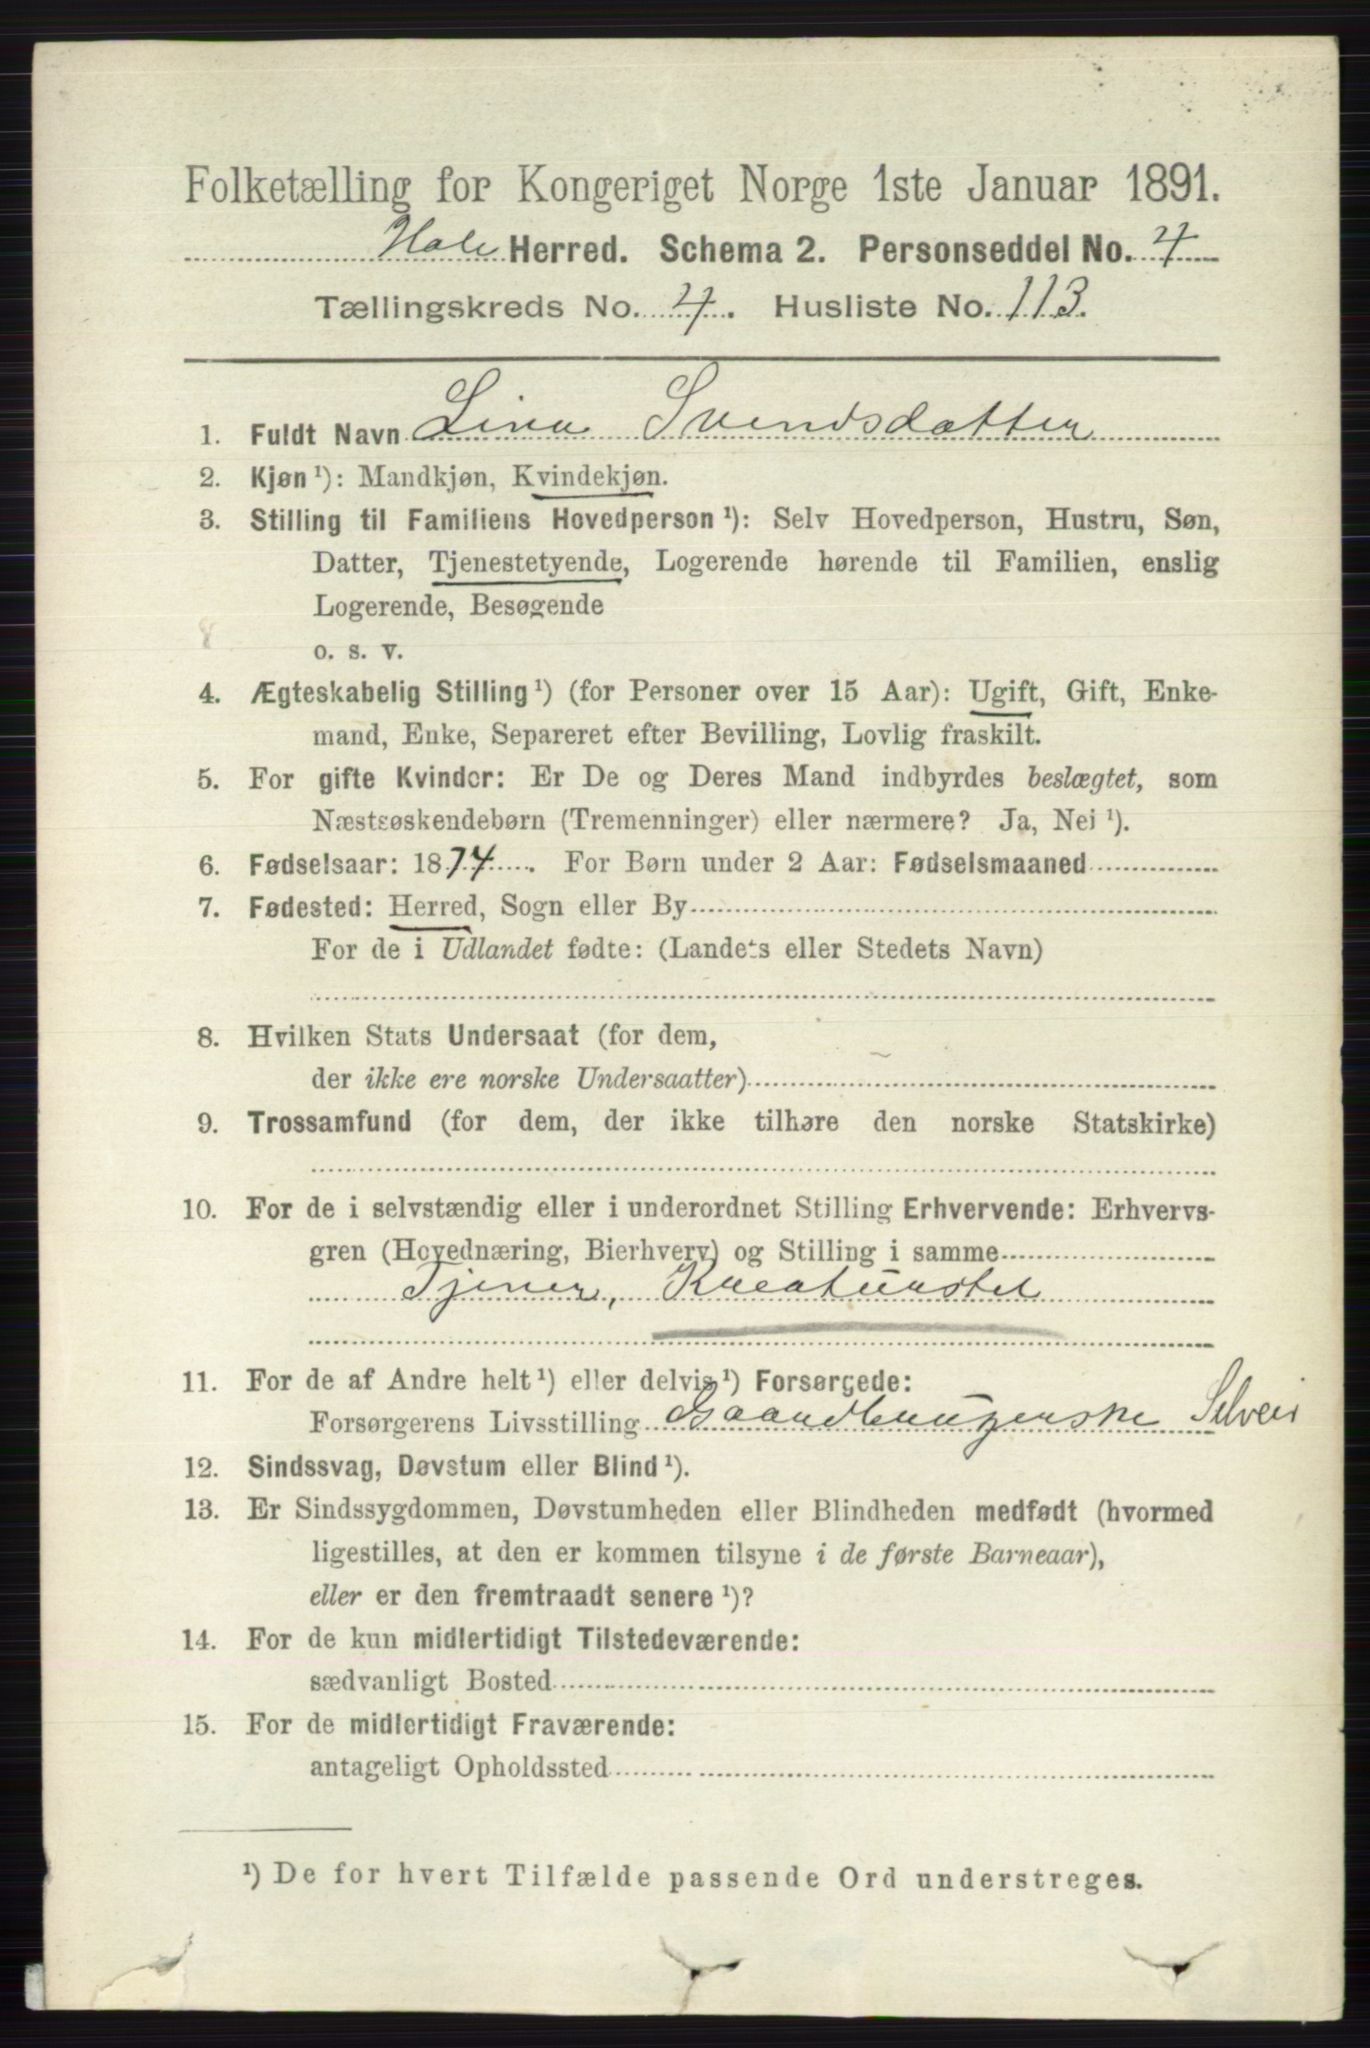 Folketælling for Kongeriget Norge 1ste Januar 1891.
Hole Herred. Schema 2. Personseddel No. 4
Tællingskreds No. 4. Husliste No. 113.
1. Fuldt Navn Lina Svendsdatter
2. Kjøn ¹): Mandkjøn, Kvindekjøn.
3. Stilling til Familiens Hovedperson ¹): Selv Hovedperson, Hustru, Søn,
Datter, Tjenestetyende, Logerende hørende til Familien, enslig
Logerende, Besøgende
o. s. v.
4. Ægteskabelig Stilling ¹) (for Personer over 15 Aar): Ugift, Gift, Enke-
mand, Enke, Separeret efter Bevilling, Lovlig fraskilt.
5. For gifte Kvinder: Er De og Deres Mand indbyrdes beslægtet, som
Næstsøskendebørn (Tremenninger) eller nærmere? Ja, Nei ¹).
6. Fødselsaar: 1874. For Børn under 2 Aar: Fødselsmaaned
7. Fødested: Herred, Sogn eller By
For de i Udlandet fødte: (Landets eller Stedets Navn)
8. Hvilken Stats Undersaat (for dem,
der ikke ere norske Undersaatter)
9. Trossamfund (for dem, der ikke tilhøre den norske Statskirke)
10. For de i selvstændig eller i underordnet Stilling Erhvervende: Erhvervs-
gren (Hovednæring, Bierhverv) og Stilling i samme
Tjener, Kreaturstel
11. For de af Andre helt ¹) eller delvis ¹) Forsørgede:
Forsørgerens Livsstilling Selveier
12. Sindssvag, Døvstum eller Blind ¹).
13. Er Sindssygdommen, Døvstumheden eller Blindheden medfødt (hvormed
ligestilles, at den er kommen tilsyne i de første Barneaar),
eller er den fremtraadt senere ¹)?
14. For de kun midlertidigt Tilstedeværende:
sædvanligt Bosted
15. For de midlertidigt Fraværende:
antageligt Opholdssted
¹) De for hvert Tilfælde passende Ord understreges.